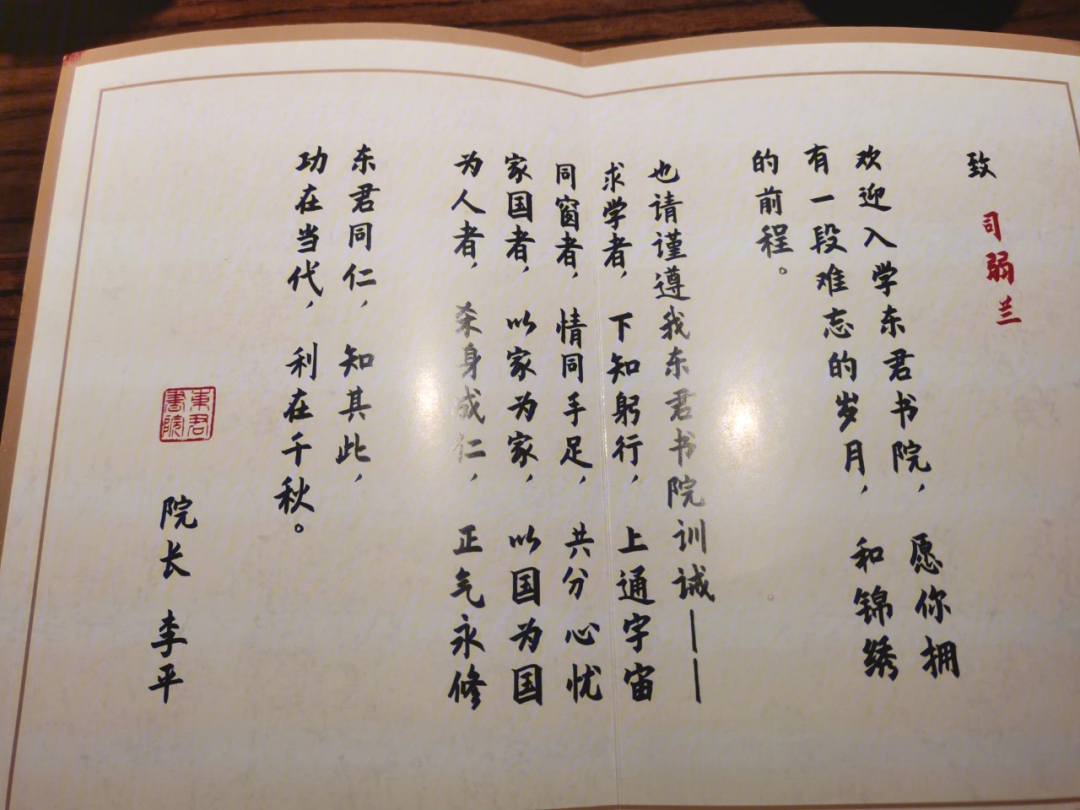 致 司弱兰
欢迎入学东君书院，愿你拥
有一段难忘的岁月，和锦绣
的前程。
也请谨遵我东君书院训诫——
求学者，下知躬行，上通宇宙
同窗者，情同手足，共分心忧
家国者，以家为家，以国为国
为人者，杀身成仁，正气永修
东君同仁，知其此，
功在当代，利在千秋。
東君書院
院长 李平